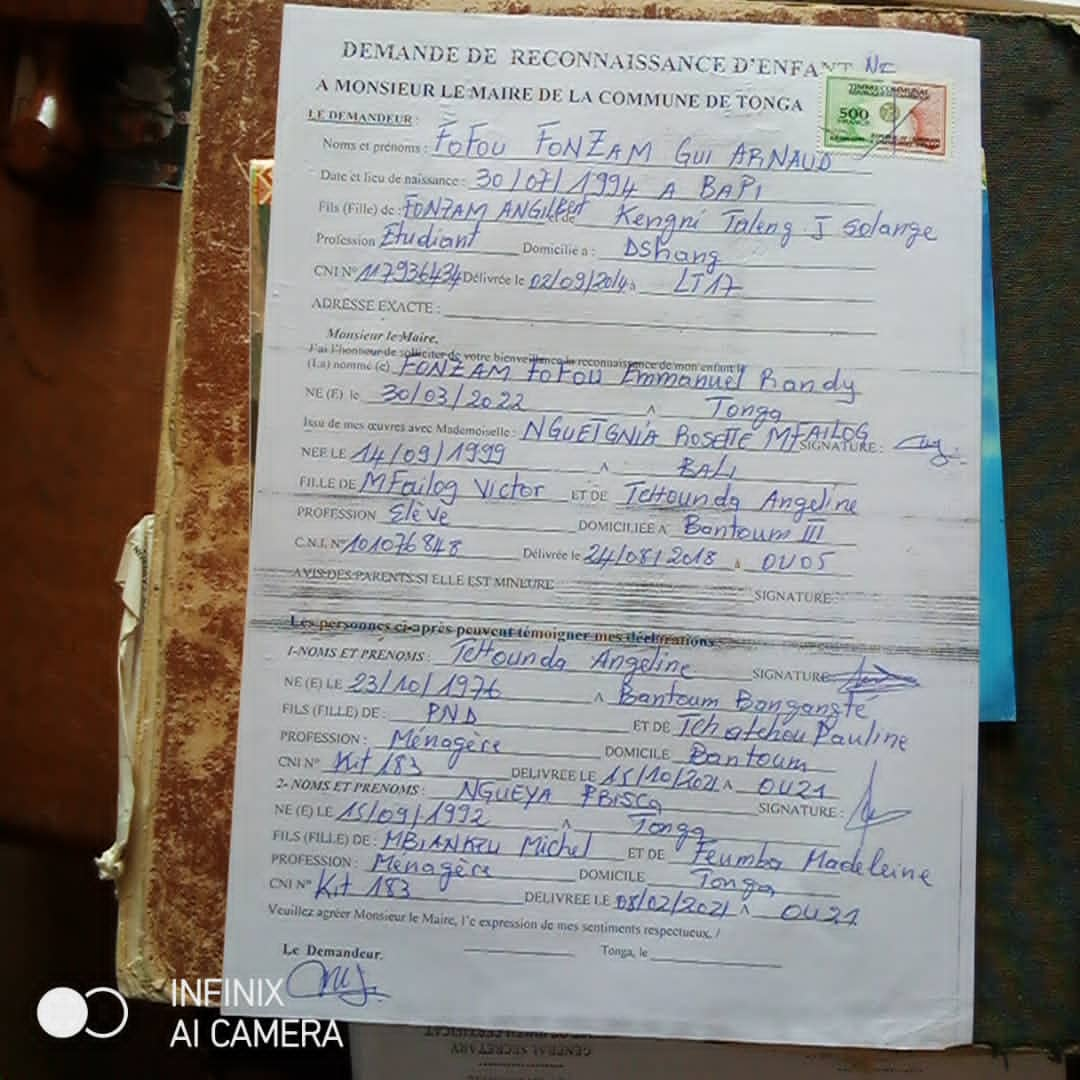 DEMANDE DE RECONNAISSANCE D'ENFANT NE
A MONSIEUR LE MAIRE DE LA COMMUNE DE TONGA
TIMBRE COMMUNAL
500
LE DEMANDEUR :
Noms et prénoms : FOFOU FONZAM GUI ARNAUD
Date et lieu de naissance : 30/07/1994 A BAPI
Fils (Fille) de : FONZAM ANGILBERT et de Kengni Taleng J Solange
Profession Etudiant Domicilie a : DShang
CNI N° 117936434 Délivrée le 02/09/2014 à LT17
ADRESSE EXACTE :
Monsieur le Maire,
J'ai l'honneur de solliciter de votre bienveillance la reconnaissance de mon enfant le
(La) nommé (e) FONZAM FOFOU Emmanuel Randy
NE (E) le 30/03/2022 A Tonga
Issu de mes œuvres avec Mademoiselle : NGUETGNIA ROSETTE MFAILOG SIGNATURE :
NEE LE 14/09/1999 A BALI
FILLE DE MFailog Victor ET DE TcHounda Angeline
PROFESSION Elève DOMICILIEE A Bantoum III
C.N.I. N° 101076848 Délivrée le 24/08/2018 à OU05
AVIS DES PARENTS SI ELLE EST MINEURE SIGNATURE :
Les personnes ci-après peuvent témoigner mes déclarations
1-NOMS ET PRENOMS : TcHounda Angeline SIGNATURE
NE (E) LE 23/10/1976 A Bantoum Bangangté
FILS (FILLE) DE : PND ET DE Tchatchou Pauline
PROFESSION : Ménagère DOMICILE Bantoum
CNI N° Kit 183 DELIVREE LE 15/10/2021 A OU21
2- NOMS ET PRENOMS : NGUEYA PBISCA SIGNATURE :
NE (E) LE 15/09/1992 A Tonga
FILS (FILLE) DE : MBIANKEU Michel ET DE Feumba Madeleine
PROFESSION : Ménagère DOMICILE Tonga
CNI N° Kit 183 DELIVREE LE 08/02/2021 A OU21
Veuillez agréer Monsieur le Maire, l'e expression de mes sentiments respectueux. /
Le Demandeur. Tonga, le
INFINIX
AI CAMERA
GENERAL SECRETARY